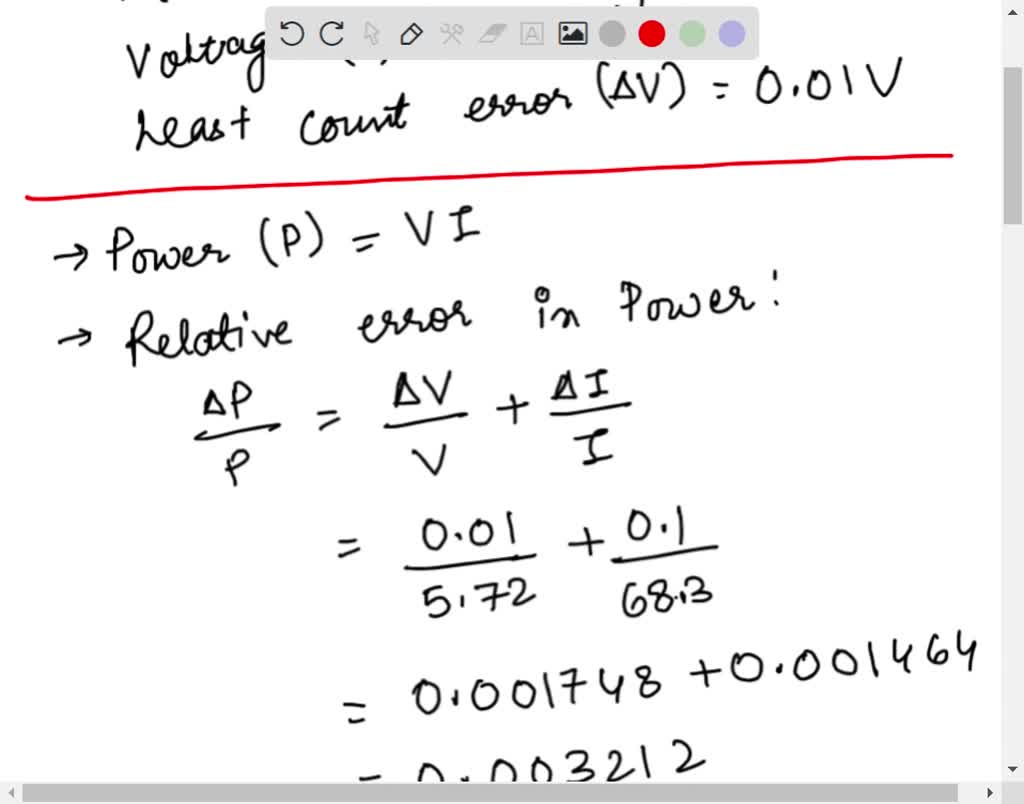 Voltag
Least count error (ΔV) = 0.01V
→ Power (P) = VI
→ Relative error in Power:
ΔP/P = ΔV/V + ΔI/I
= 0.01/5.72 + 0.1/68.3
= 0.001748 + 0.001464
= 0.003212